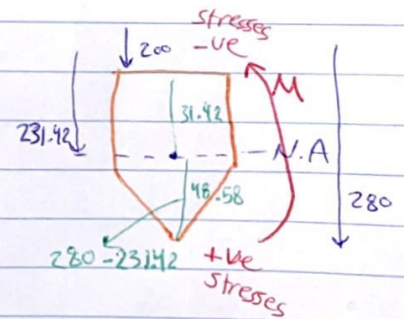 stresses
-ve
200
M
31.42
231.42
N.A
48.58
280
280-231.42
+ve
stresses